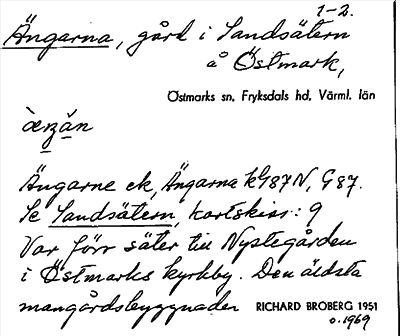 1-2.
Ängarna, gård i Sandsätern
å Östmark,
Östmarks sn, Fryksdals hd, Värml. län
Ängarne ek, Ängarna kG87N, G87.
Se Sandsätern, kartskiss: 9
Var förr säter till Nystegården
i Östmarks kyrkby. Den äldsta
mangårdsbyggnaden RICHARD BROBERG 1951
o. 1969